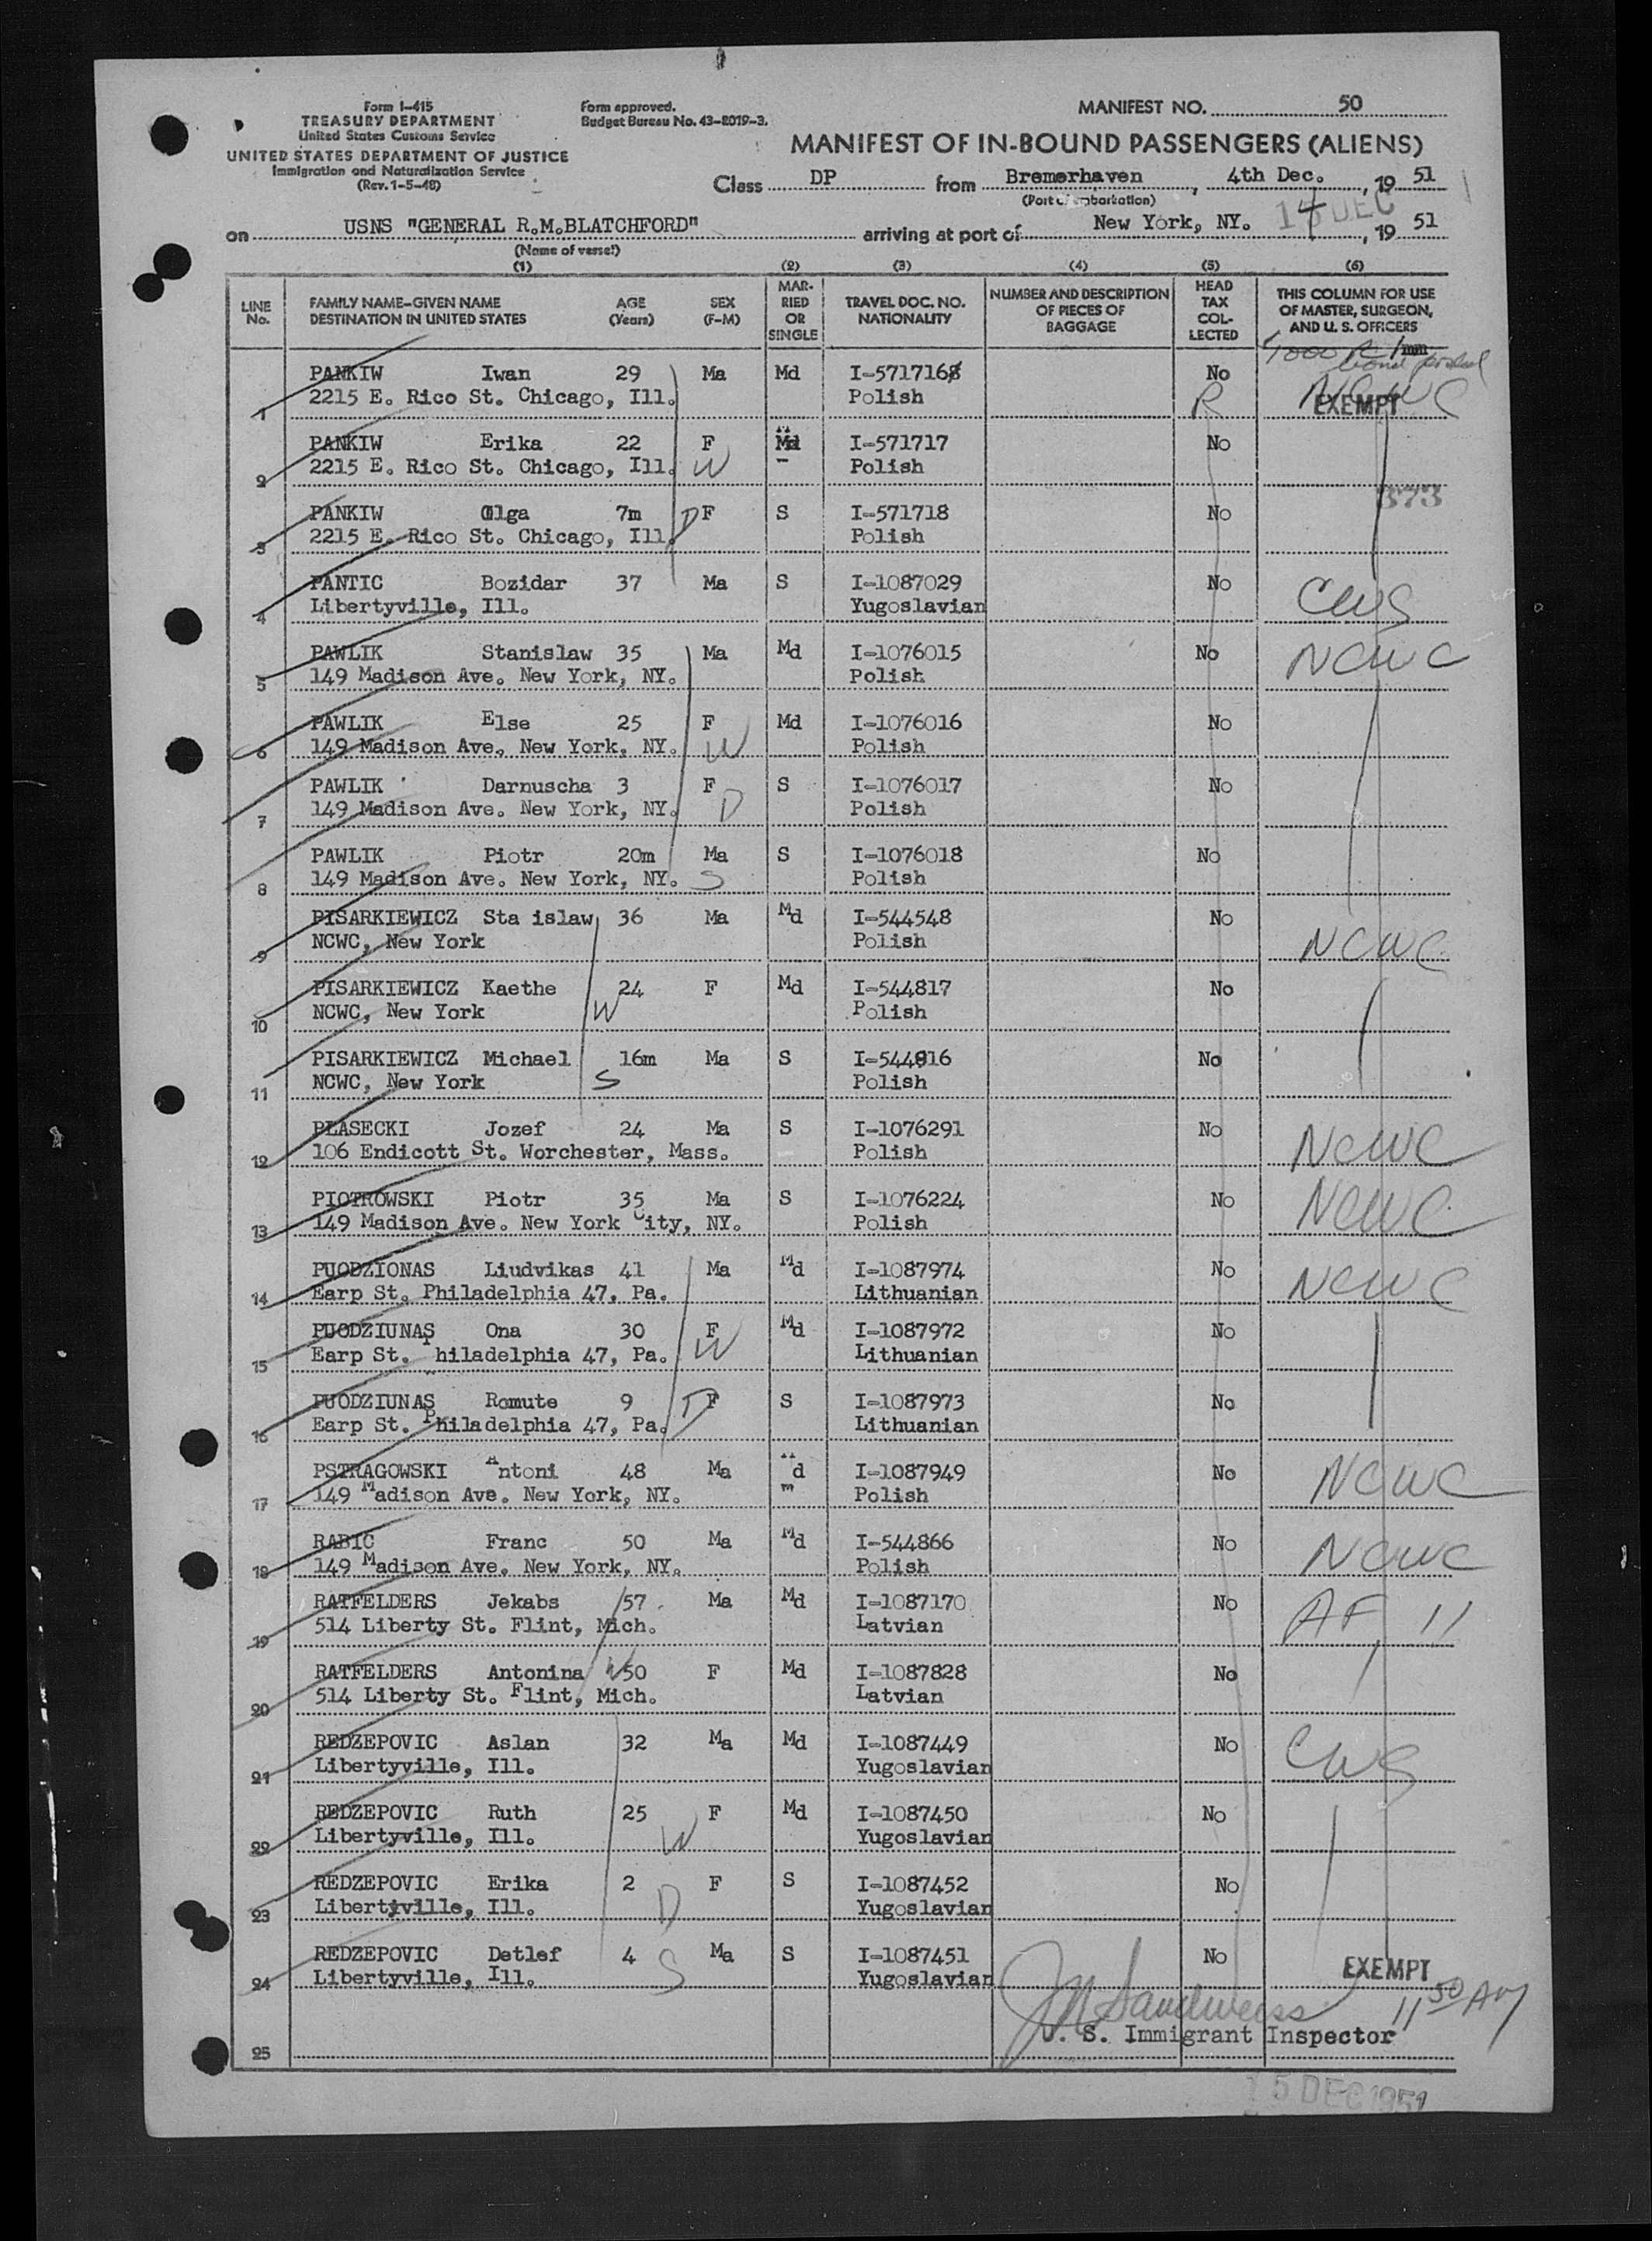 Form I-415
TREASURY DEPARTMENT
United States Customs Service
UNITED STATES DEPARTMENT OF JUSTICE
Immigration and Naturalization Service
(Rev. 1-5-48)
Form approved.
Budget Bureau No. 43-R019-3.
MANIFEST NO. 50
MANIFEST OF IN-BOUND PASSENGERS (ALIENS)
Class DP from Bremerhaven, 4th Dec., 19 51
(Port of embarkation)
on USNS "GENERAL R.M.BLATCHFORD" arriving at port of New York, NY. DEC, 19 51
(Name of vessel)
(1) (2) (3) (4) (5) (6)
LINE No. FAMILY NAME-GIVEN NAME DESTINATION IN UNITED STATES AGE (Years) SEX (F-M) MARRIED OR SINGLE TRAVEL DOC. NO. NATIONALITY NUMBER AND DESCRIPTION OF PIECES OF BAGGAGE HEAD TAX COLLECTED THIS COLUMN FOR USE OF MASTER, SURGEON, AND U. S. OFFICERS
PANKIW Iwan 29 Ma Md I-571716 No
1 2215 E. Rico St. Chicago, Ill. Polish R NCWC EXEMPT
PANKIW Erika 22 F Md I-571717 No
2 2215 E. Rico St. Chicago, Ill. W Polish
373
PANKIW Olga 7m D F S I-571718 No
3 2215 E. Rico St. Chicago, Ill. Polish
PANTIC Bozidar 37 Ma S I-1087029 No CWS
4 Libertyville, Ill. Yugoslavian
PAWLIK Stanislaw 35 Ma Md I-1076015 No NCWC
5 149 Madison Ave. New York, NY. Polish
PAWLIK Else 25 F Md I-1076016 No
6 149 Madison Ave. New York, NY. W Polish
PAWLIK Darnuscha 3 F S I-1076017 No
7 149 Madison Ave. New York, NY. D Polish
PAWLIK Piotr 20m Ma S I-1076018 No
8 149 Madison Ave. New York, NY. S Polish
PISARKIEWICZ Sta islaw 36 Ma Md I-544548 No
9 NCWC, New York Polish NCWC
PISARKIEWICZ Kaethe 24 F Md I-544817 No
10 NCWC, New York W Polish
PISARKIEWICZ Michael 16m Ma S I-544816 No
11 NCWC, New York S Polish
PLASECKI Jozef 24 Ma S I-1076291 No NCWC
12 106 Endicott St. Worchester, Mass. Polish
PIOTROWSKI Piotr 35 Ma S I-1076224 No NCWC
13 149 Madison Ave. New York City, NY. Polish
PUODZIONAS Liudvikas 41 Ma Md I-1087974 No NCWC
14 Earp St. Philadelphia 47, Pa. Lithuanian
PUODZIUNAS Ona 30 F Md I-1087972 No
15 Earp St. Philadelphia 47, Pa. W Lithuanian
PUODZIUNAS Romute 9 D F S I-1087973 No
16 Earp St. Philadelphia 47, Pa. Lithuanian
PSTRAGOWSKI Antoni 48 Ma Md I-1087949 No NCWC
17 149 Madison Ave. New York, NY. Polish
RABIC Franc 50 Ma Md I-544866 No NCWC
18 149 Madison Ave. New York, NY. Polish
RATFELDERS Jekabs 57 Ma Md I-1087170 No AF 11
19 514 Liberty St. Flint, Mich. Latvian
RATFELDERS Antonina W 50 F Md I-1087828 No
20 514 Liberty St. Flint, Mich. Latvian
REDZEPOVIC Aslan 32 Ma Md I-1087449 No CWS
21 Libertyville, Ill. Yugoslavian
REDZEPOVIC Ruth 25 F Md I-1087450 No
22 Libertyville, Ill. W Yugoslavian
REDZEPOVIC Erika 2 F S I-1087452 No
23 Libertyville, Ill. D Yugoslavian
REDZEPOVIC Detlef 4 Ma S I-1087451 No EXEMPT
24 Libertyville, Ill. S Yugoslavian
JM Sandweiss 11 50 AM
U. S. Immigrant Inspector
25
15 DEC 1951